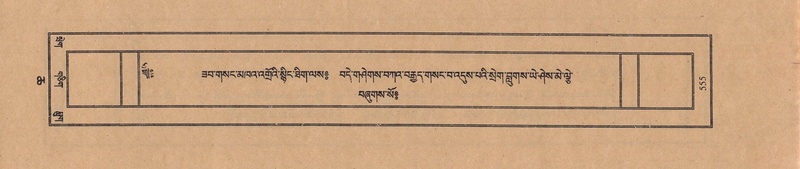 ཟབ་གསང་མཁའ་འགྲོའི་སྙིང་ཐིག་ལས༔ བདེ་གཤེགས་བཀའ་བརྒྱད་གསང་བ་འདུས་པའི་སྲེག་བླུགས་ཡེ་ཤེས་མེ་ལྕེ་
བཞུགས་སོ༔
555